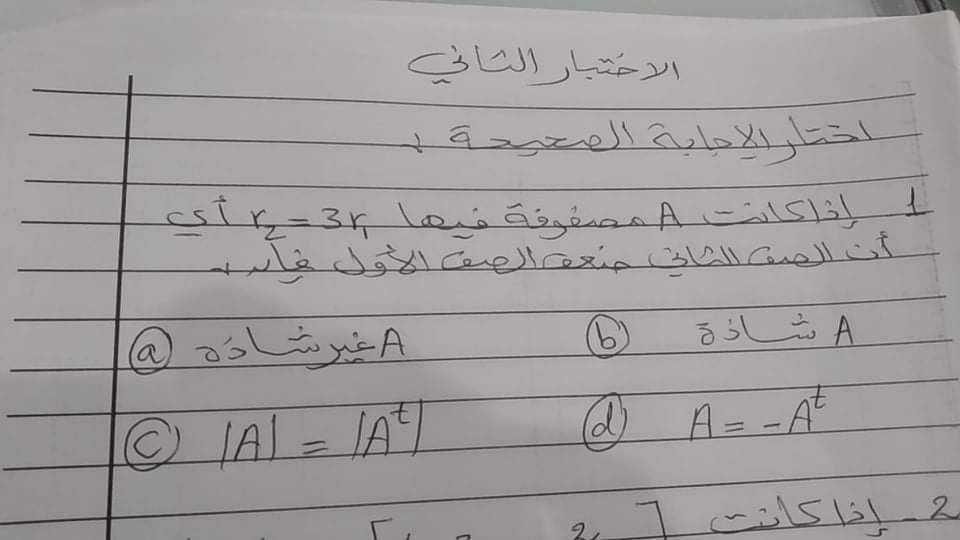 الاختبار الثاني
اختار الإجابة الصحيحة :
1 إذا كانت A مصفوفة فيها r₂ = 3r₁ أي
أن الصف الثاني ضعف الصف الأول فإن :
ⓐ A غير شاذة ⓑ A شاذة
ⓒ |A| = |Aᵗ| ⓓ A = -Aᵗ
2- إذا كانت [